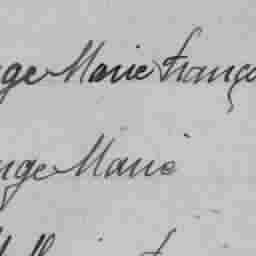 ge Marie Franço
nge Marie